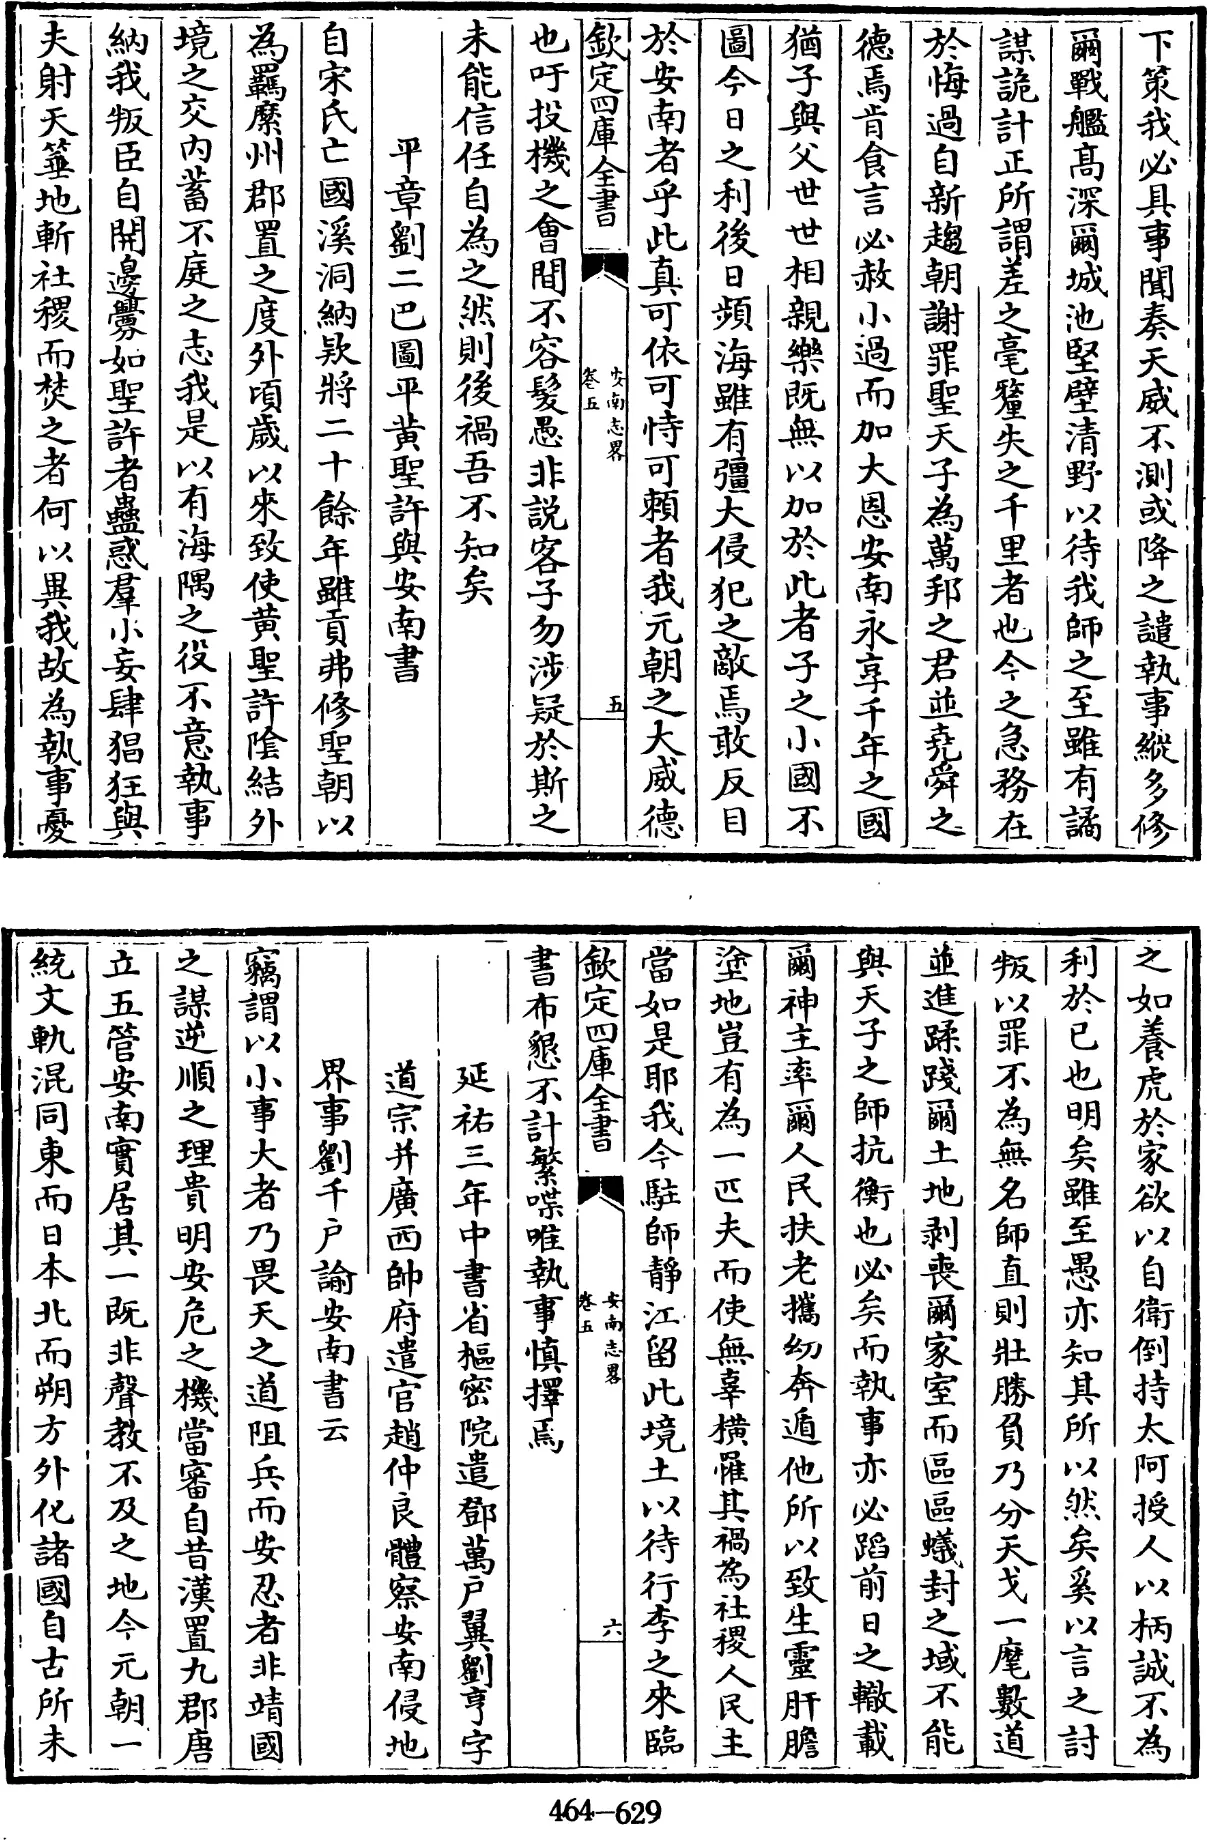 下策我必具事聞奏天威不測或降之譴執事縱多修
爾戰艦髙深爾城池堅壁清野以待我師之至雖有譎
謀詭計正所謂差之毫釐失之千里者也今之急務在
於悔過自新趨朝謝罪聖天子為萬邦之君並堯舜之
德焉肯食言必赦小過而加大恩安南永享千年之國
猶子與父世世相親樂既無以加於此者子之小國不
圖今日之利後日頻海雖有彊大侵犯之敵焉敢反目
於安南者乎此真可依可恃可賴者我元朝之大威德
欽定四庫全書
安南志畧
卷五
五
也吁投機之會間不容髮愚非説客子勿涉疑於斯之
未能信任自為之然則後禍吾不知矣
平章劉二巴圖平黃聖許與安南書
自宋氏亡國溪洞納欵將二十餘年雖貢弗修聖朝以
為羈縻州郡置之度外頃歲以來致使黄聖許陰結外
境之交内蓄不庭之志我是以有海隅之役不意執事
納我叛臣自開邊釁如聖許者蠱惑羣小妄肆猖狂與
夫射天箠地斬社稷而焚之者何以異我故為執事憂
之如養虎於家欲以自衛倒持太阿授人以柄誠不為
利於已也明矣雖至愚亦知其所以然矣奚以言之討
叛以罪不為無名師直則壯勝負乃分天戈一麾數道
並進蹂踐爾土地剥喪爾家室而區區蟻封之域不能
與天子之師抗衡也必矣而執事亦必蹈前日之轍載
爾神主率爾人民扶老攜幼奔遁他所以致生靈肝膽
塗地豈有為一匹夫而使無辜横罹其禍為社稷人民主
當如是耶我今駐師靜江留此境土以待行李之來臨
欽定四庫全書
安南志畧
卷五
六
書布懇不計繁喋唯執事慎擇焉
延祐三年中書省樞密院遣鄧萬户翼劉亨字
道宗并廣西帥府遣官趙仲良體察安南侵地
界事劉千户諭安南書云
竊謂以小事大者乃畏天之道阻兵而安忍者非靖國
之謀逆順之理貴明安危之機當審自昔漢置九郡唐
立五管安南實居其一既非聲教不及之地今元朝一
統文軌混同東而日本北而朔方外化諸國自古所未
464-629